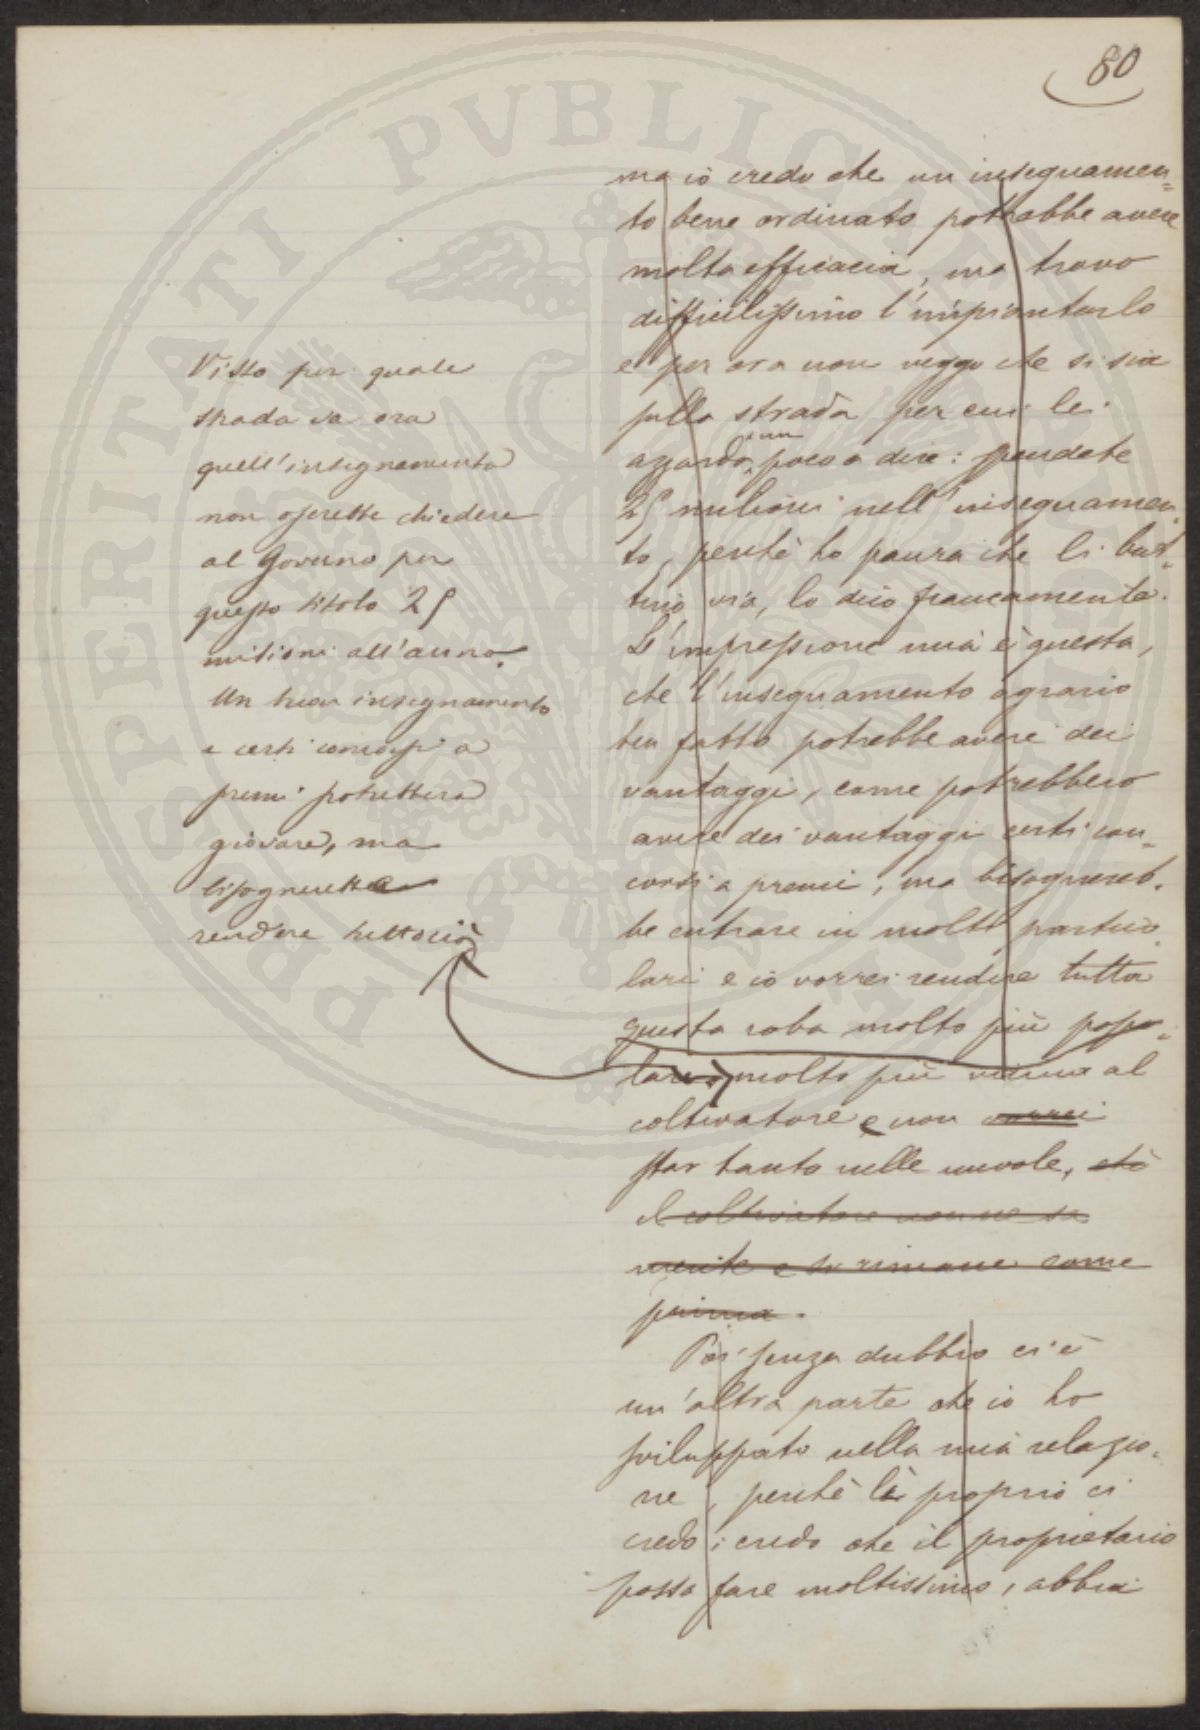 80
ma io credo che un insegnamen=
to bene ordinato potrebbe avere
molta efficacia, ma trovo
difficilissimo l'impiantarlo
e per ora non veggo che si sia
sulla strada per cui lei
azzardo, un poco a dire: spendete
25 milioni nell'insegnamen=
to, perchè ho paura che li but=
tino via, lo dico francamente.
L'impressione mia è questa,
che l'insegnamento agrario
ben fatto potrebbe avere dei
vantaggi, come potrebbero
avere dei vantaggi certi con=
corsi a premi, ma bisognereb=
be entrare in molti partico=
lari e io vorrei rendere tutta
questa roba molto più popo=
lare, molto più vicina al
coltivatore e non vorrei
star tanto nelle nuvole, chè
il coltivatore non ne sa
niente e si rimane come
prima.
Poi senza dubbio ci è
un'altra parte che io ho
sviluppato nella mia relazio=
ne, perchè lì proprio ci
credo; credo che il proprietario
possa fare moltissimo, abbia
Visto per quale
strada va ora
quell'insegnamento
non oserebbe chiedere
al Governo per
questo titolo 25
milioni all'anno.
Un buon insegnamento
e certi concorsi a
premi potrebbero
giovare, ma
bisognerebbe
rendere tuttociò
PROSPERITATI PVBLICAE